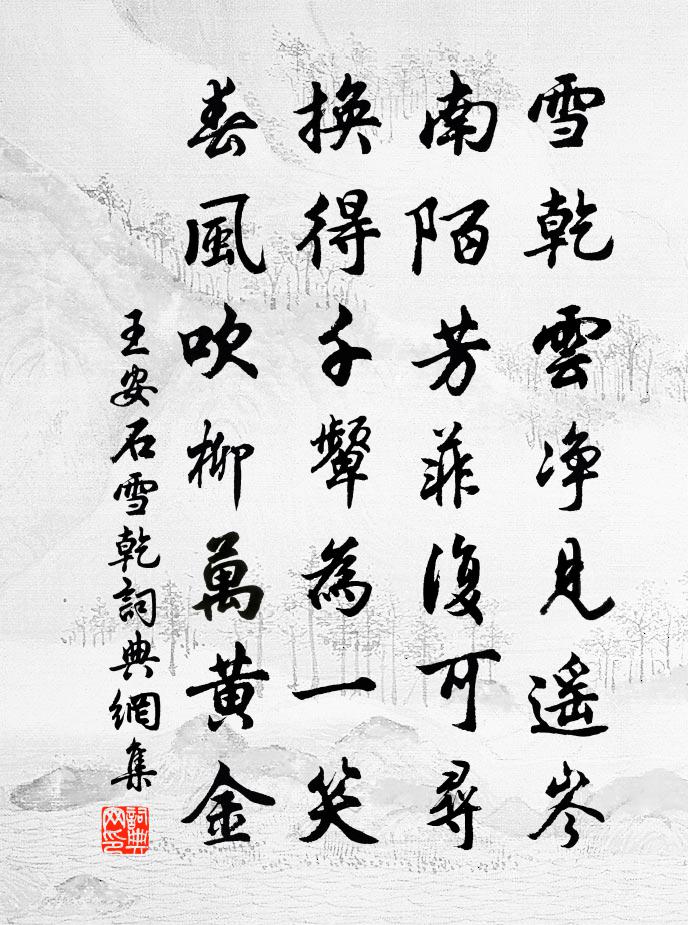 雪乾雲净見遥岑
南陌芳菲復可尋
換得千顰為一笑
春風吹柳萬黃金
王安石雪乾詞典網集
詞典網印